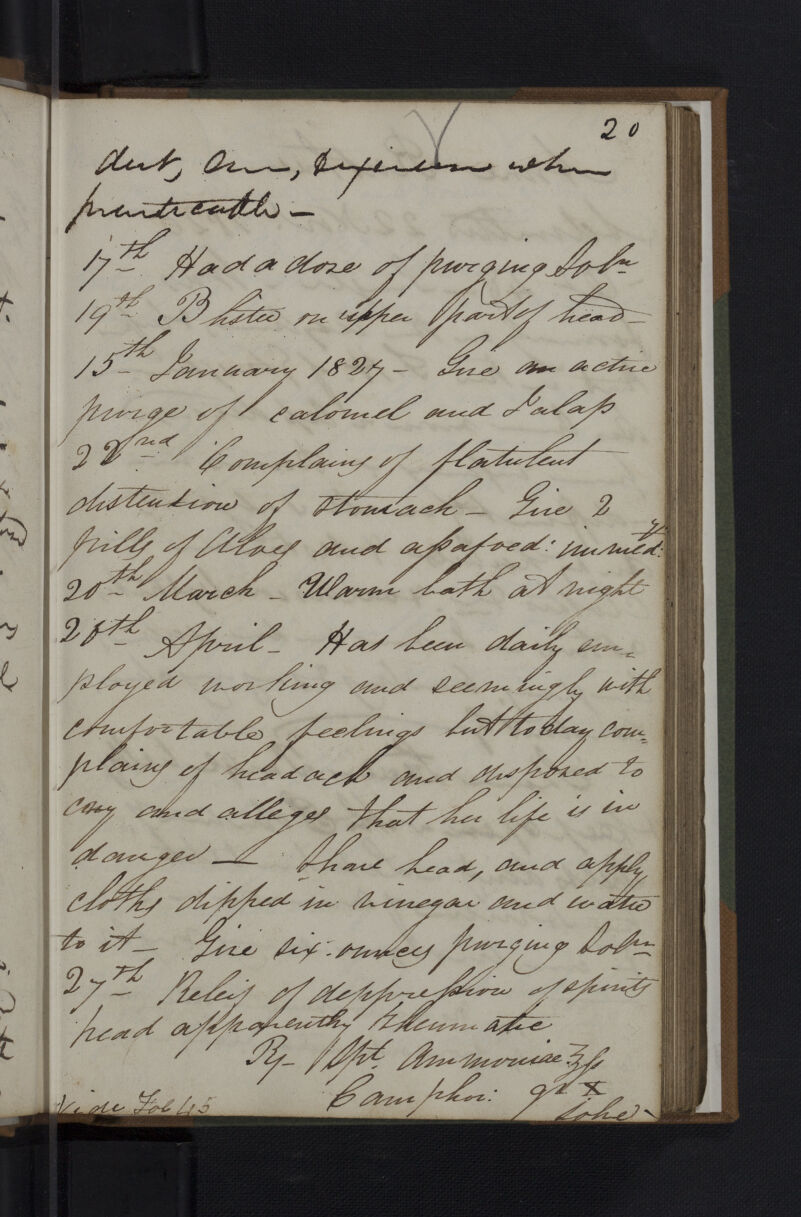 20
diet, air, exercise when
practicable —
17th Had a dose of purging Soln
19th Blister on upper part of head —
15th January 1827 — Give an active
purge of calomel and Jalap
22nd Complains of flatulent
distention of stomach — Give 2
pills of Aloes and assafoed: immedy:
20th March — Warm bath at night
26th April — Has been daily em=
ployed working and seemingly with
comfortable feelings but to day com=
plains of headach and disposed to
cry and alleges that her life is in
danger — Shave head, and apply
cloths dipped in vinegar and water
to it — Give six ounces purging Soln
27th Relief of deppression of spirits
head apparently rheumatic
Rx Spt. Ammoniae ʒss
Camphor: gr x
Solve —
Vide Fol 45